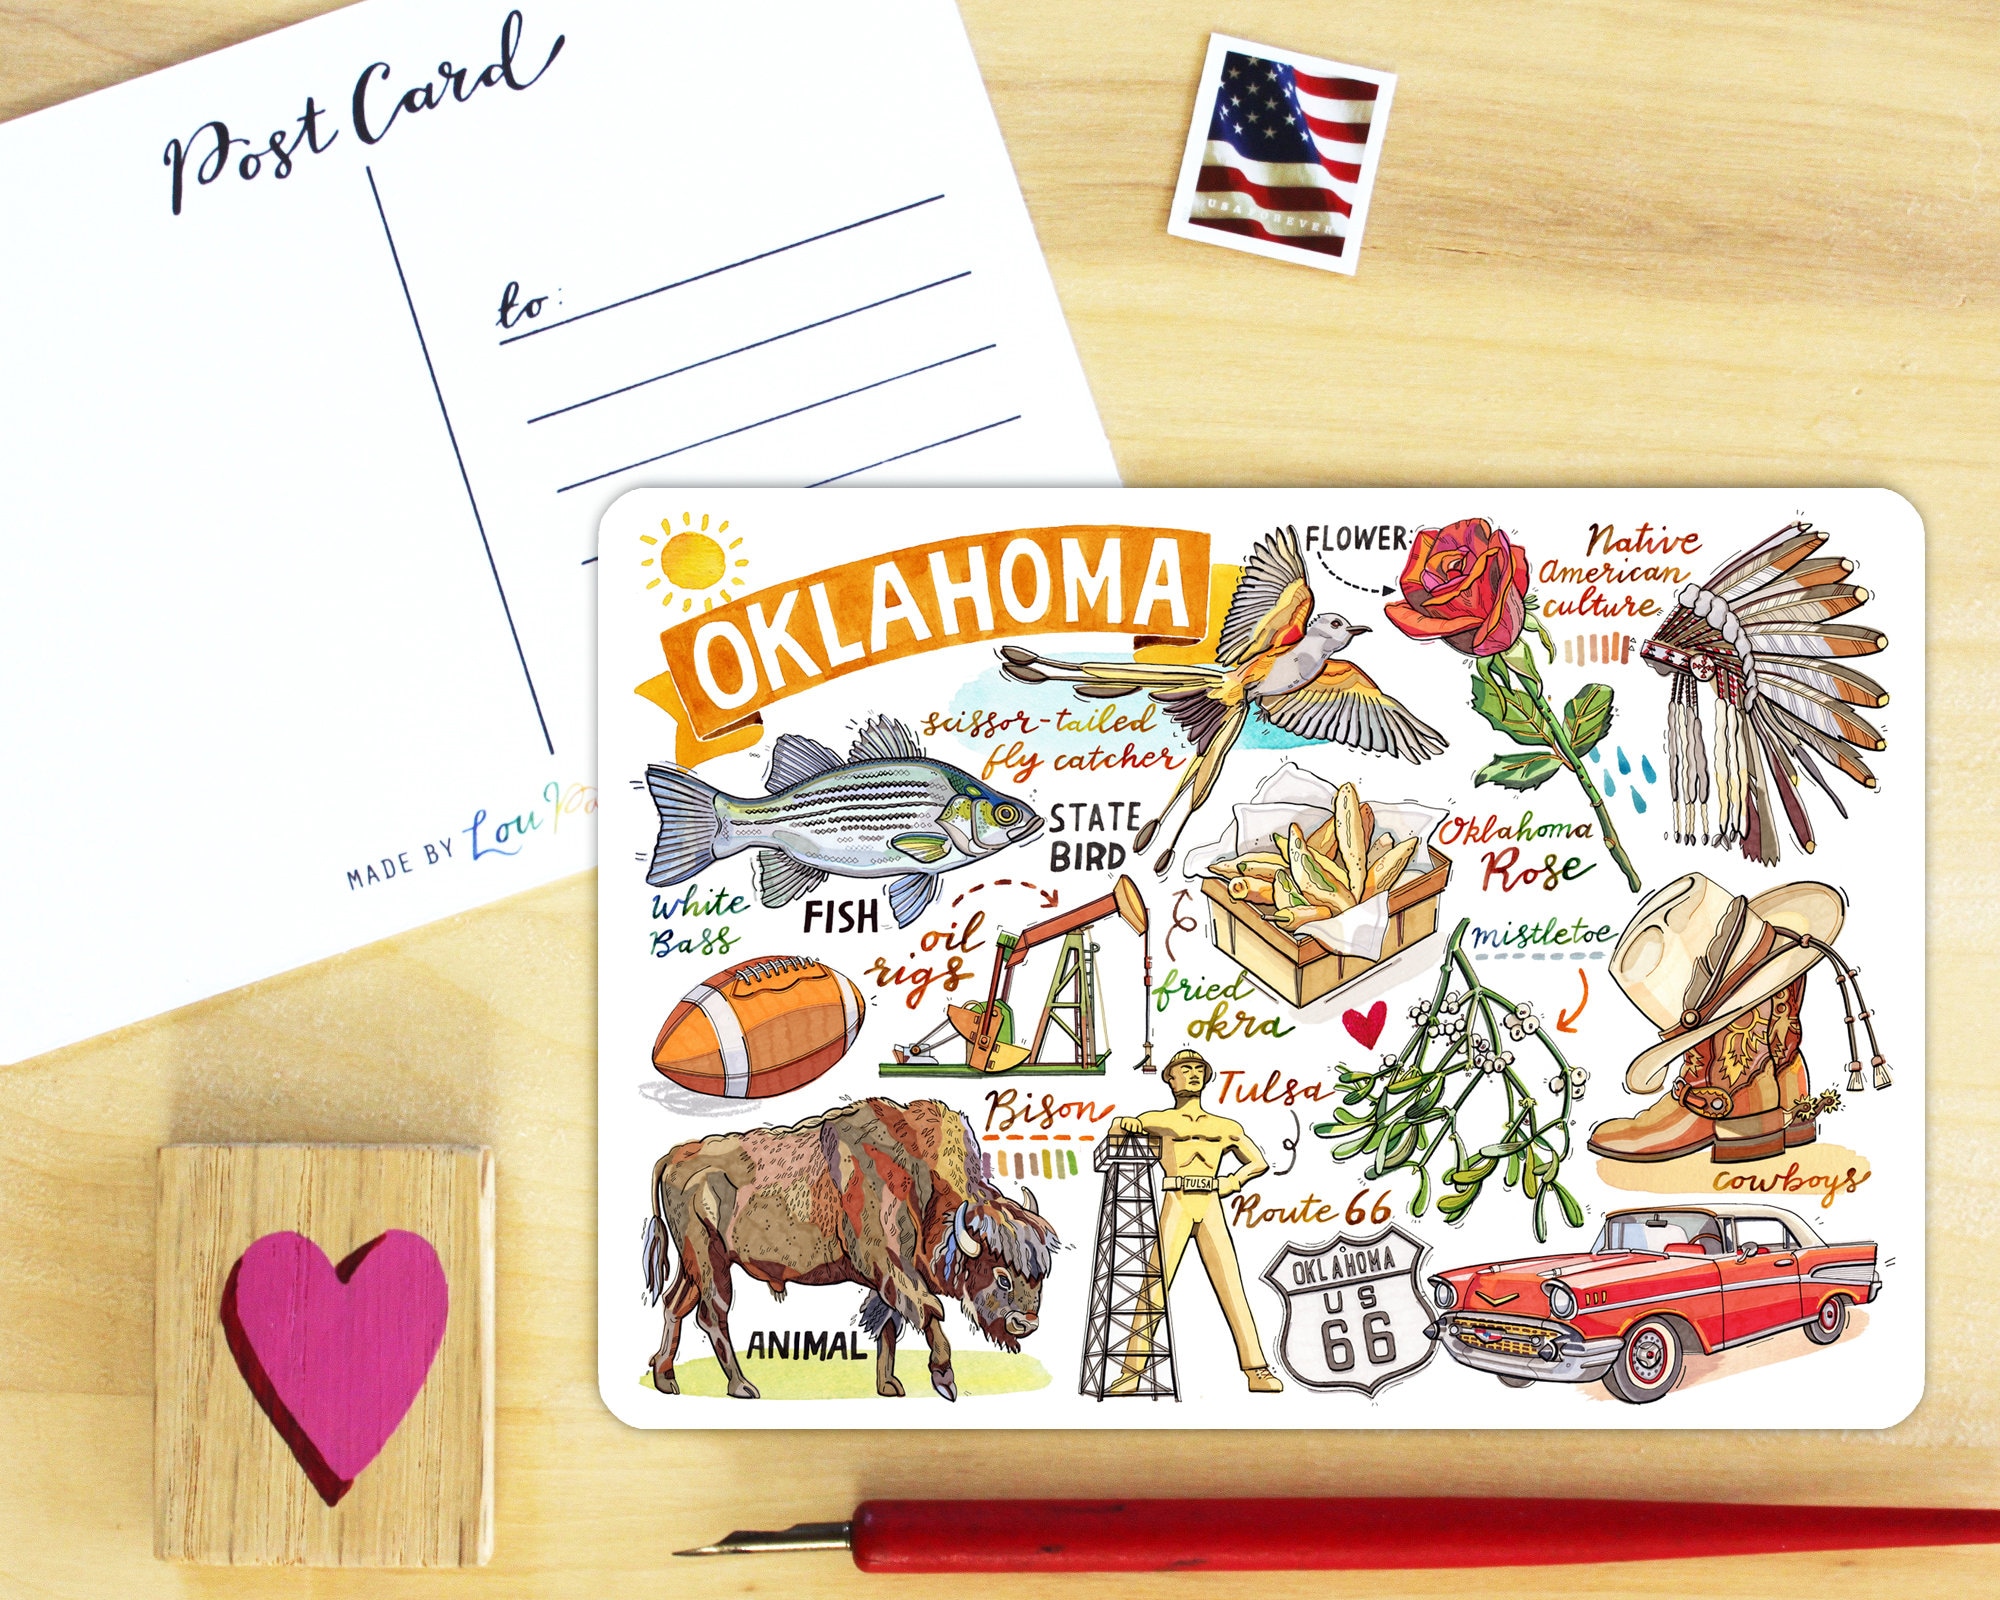 Post Card
to:
MADE BY Lou
USA FOREVER
OKLAHOMA
FLOWER:
Native
American
culture
scissor-tailed
fly catcher
STATE
BIRD
Oklahoma
Rose
white
Bass
FISH
oil
rigs
mistletoe
fried
okra
Bison
Tulsa
TULSA
cowboys
Route 66
OKLAHOMA
US
66
ANIMAL